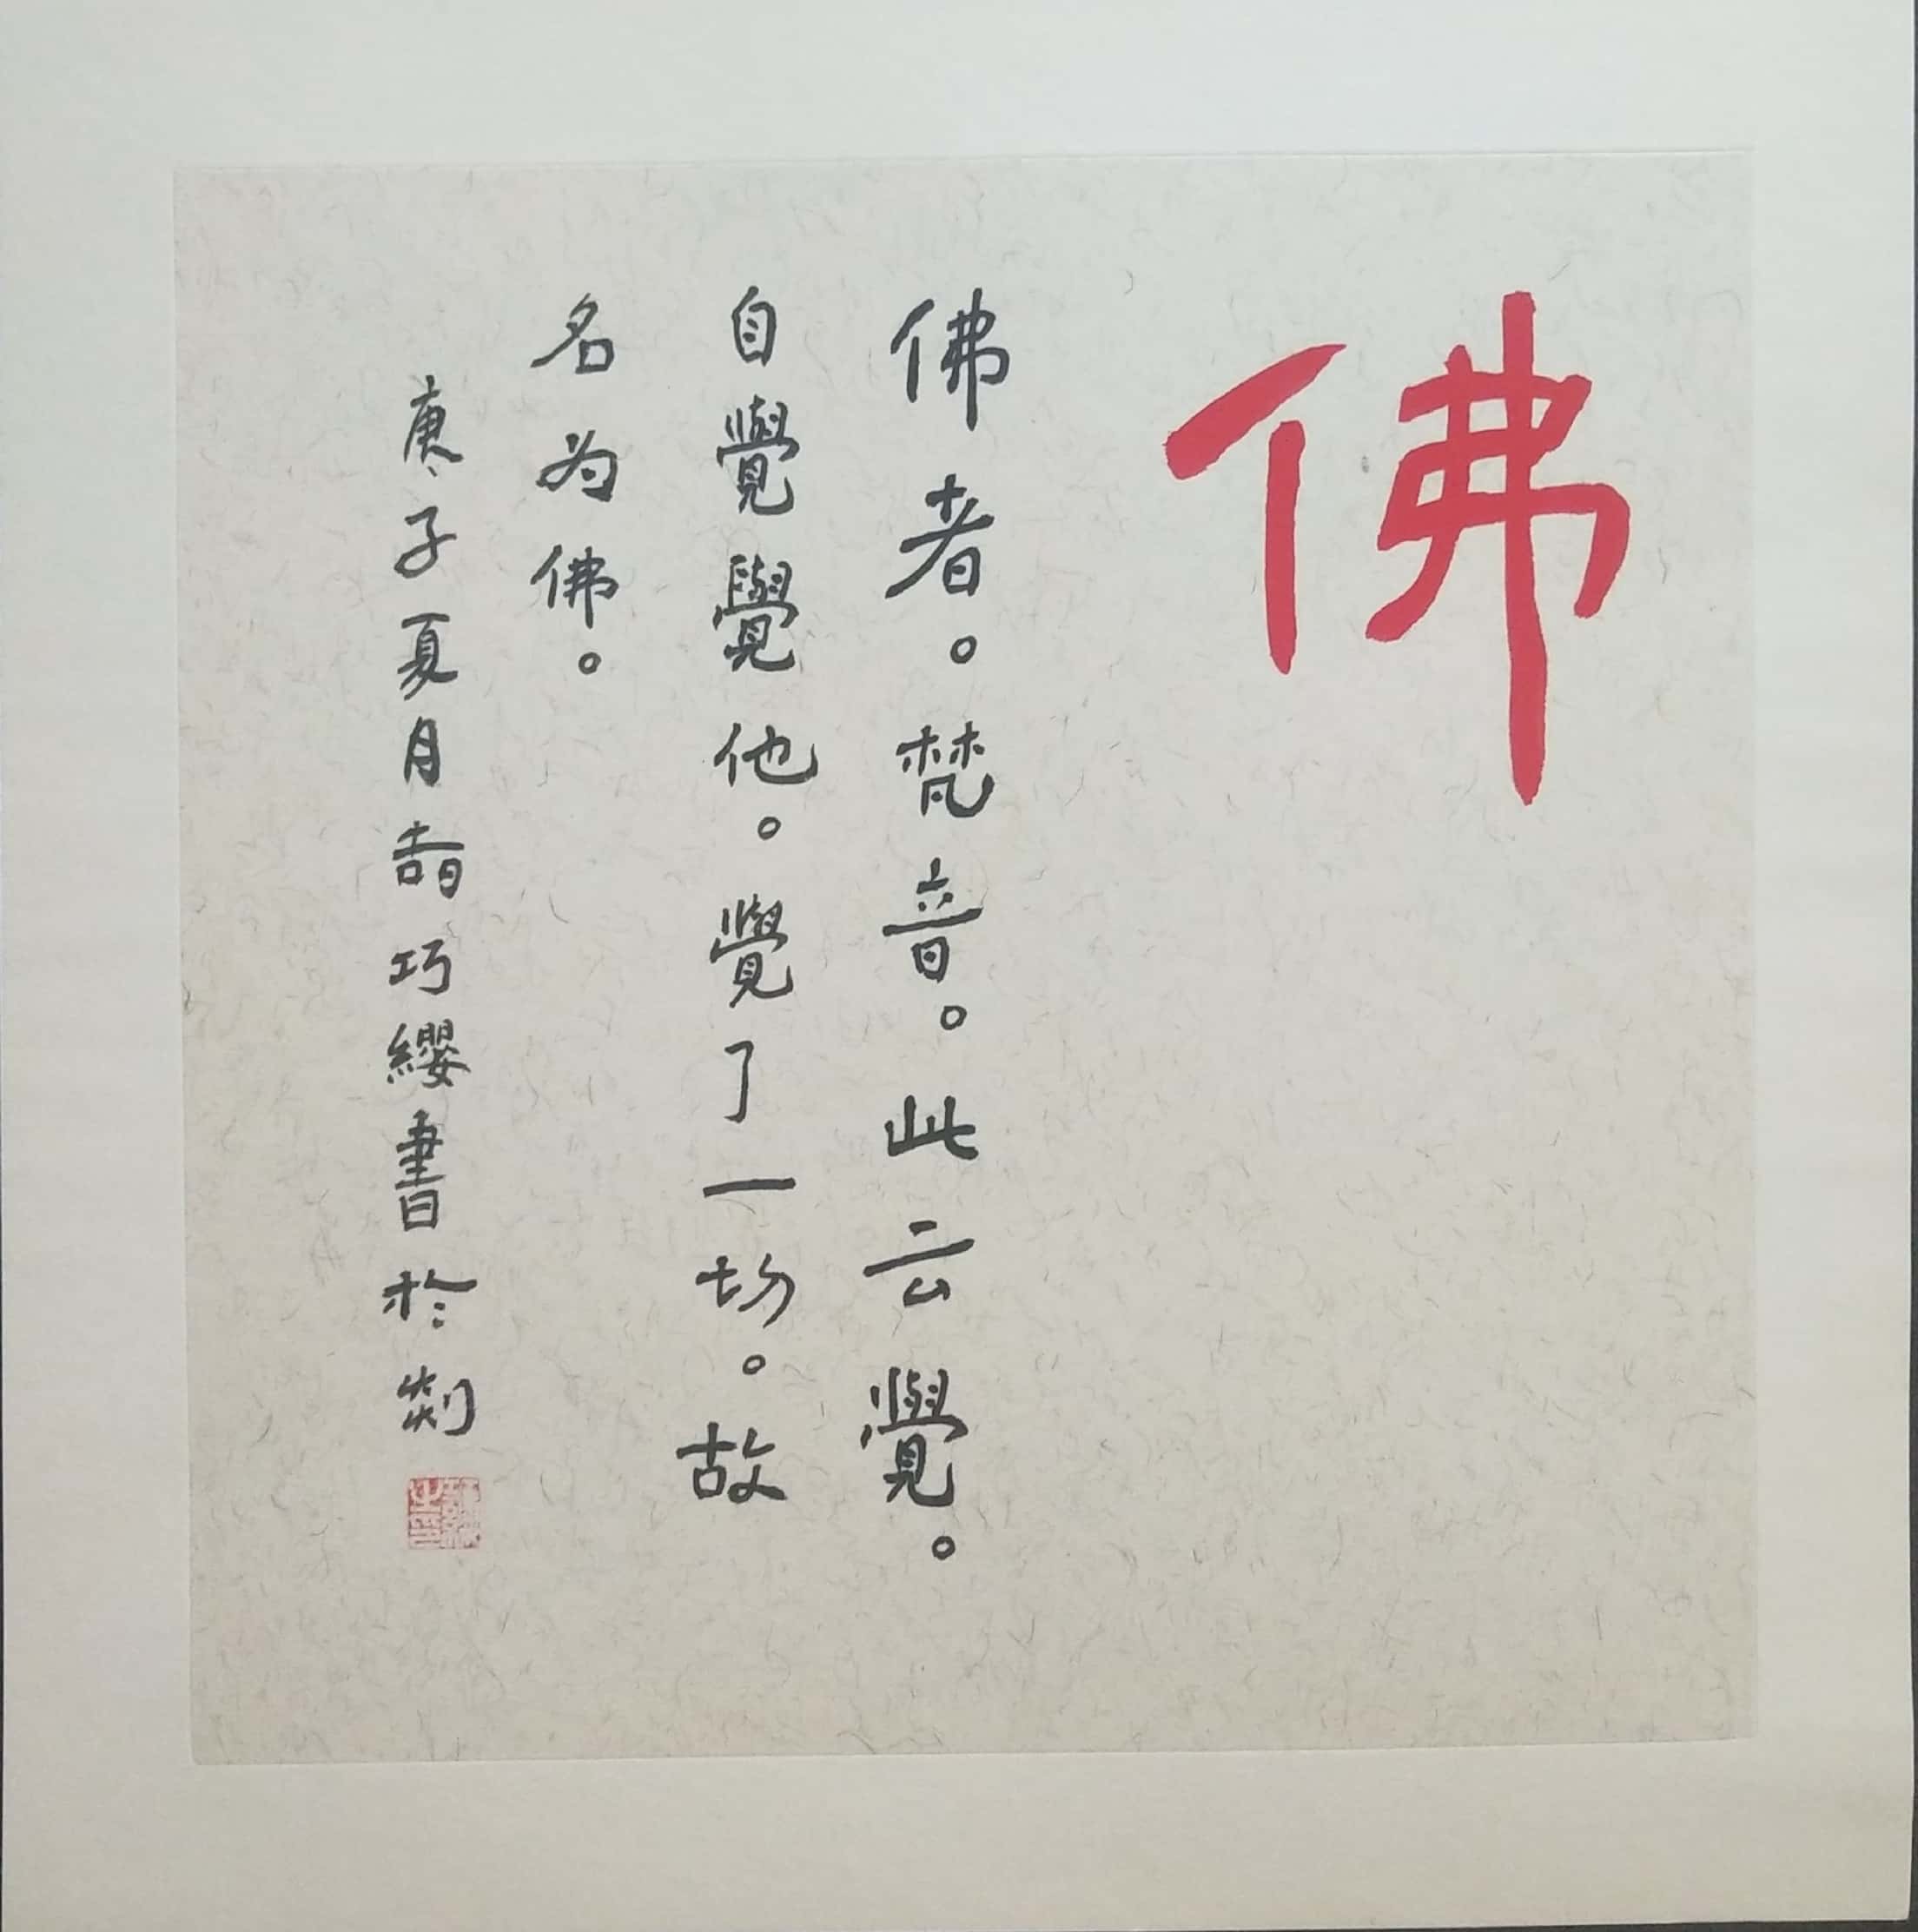 佛
佛者。梵音。此云覺。
自覺覺他。覺了一切。故
名为佛。
庚子夏月喆巧纓書於剡